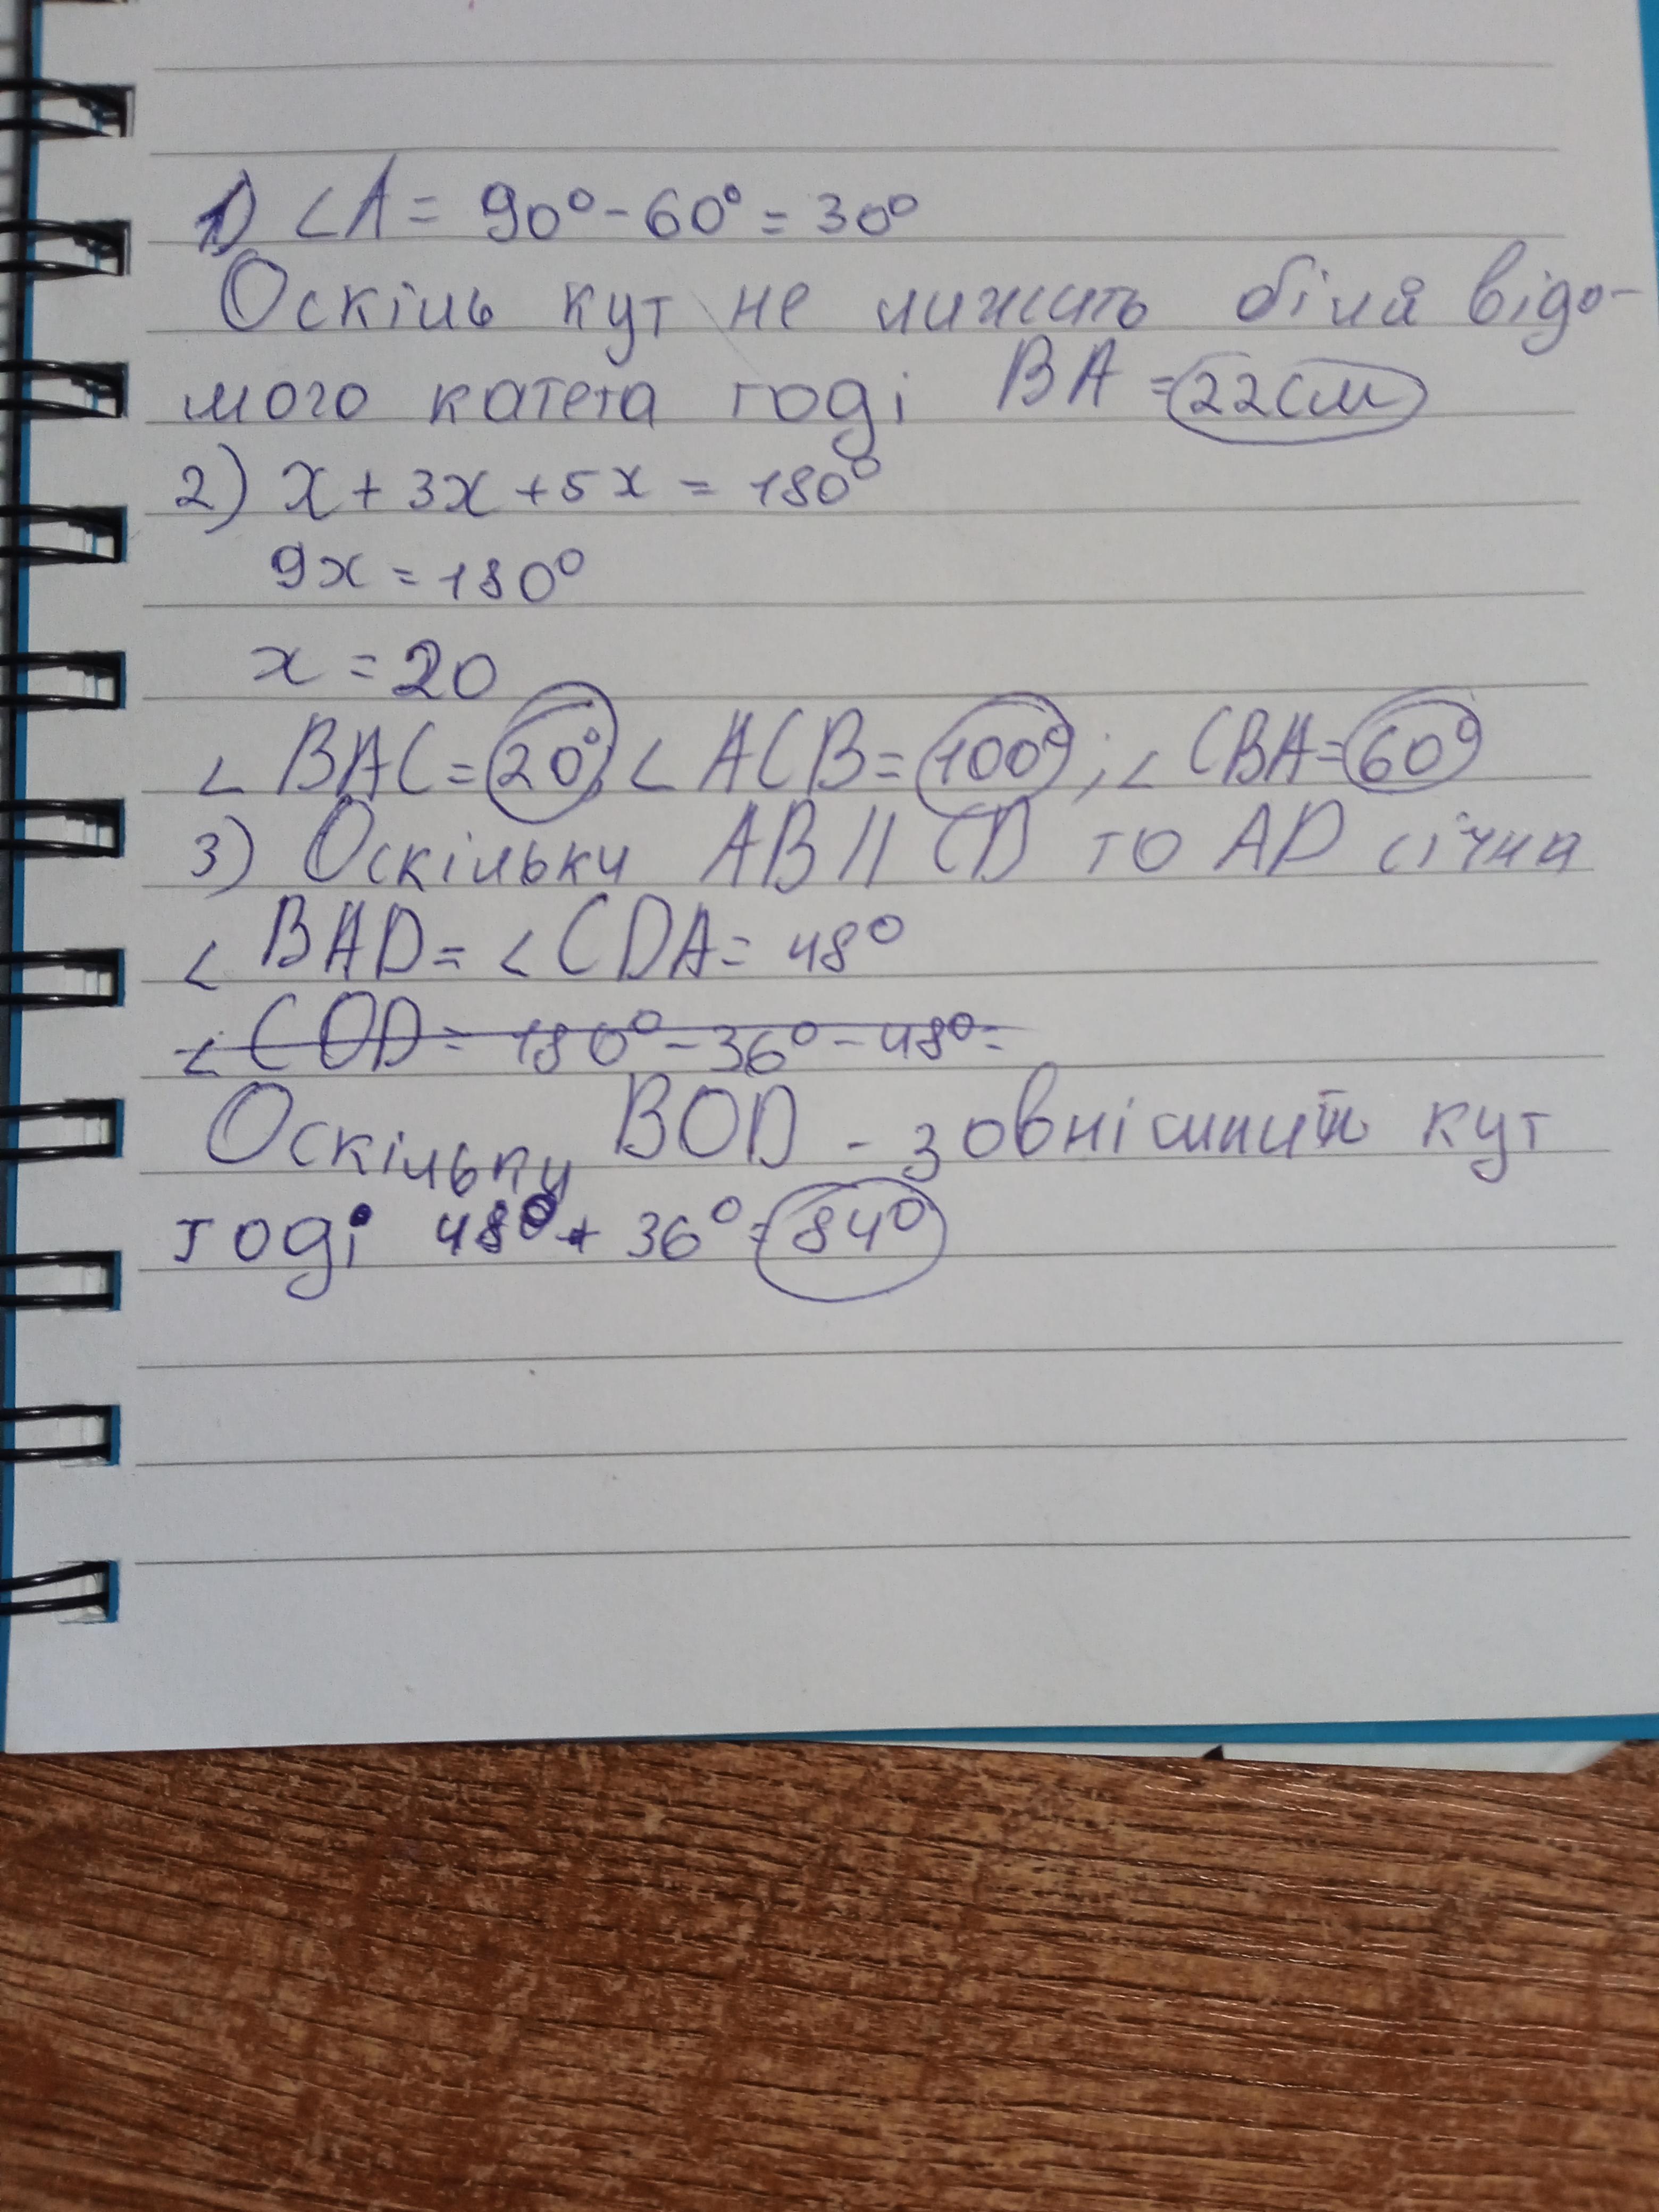 1) ∠A = 90° - 60° = 30°
Оскіль кут не лижить біля відо-
мого катета тоді BA = 22см
2) x + 3x + 5x = 180°
9x = 180°
x = 20
∠BAC = 20°; ∠ACB = 100°; ∠CBA = 60°
3) Оскільки AB || CD то AD січна
∠BAD = ∠CDA = 48°
∠COD = 180° - 36° - 48° =
Оскільки BOD - зовнішний кут
тоді 48° + 36° = 84°